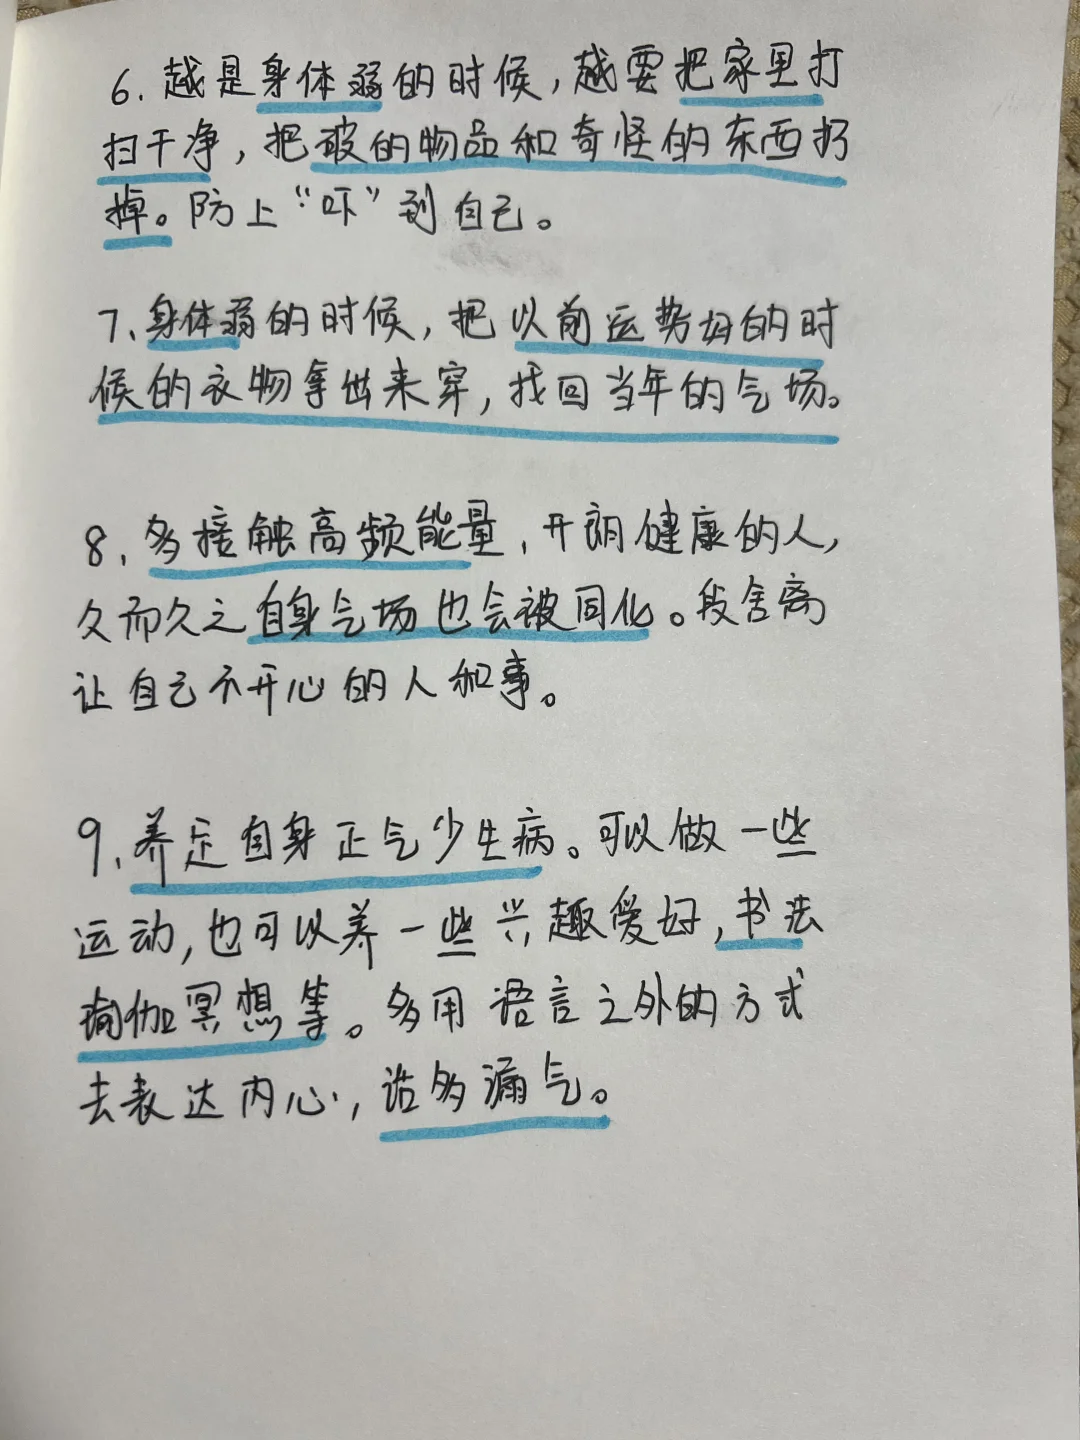 6. 越是身体弱的时候，越要把家里打
扫干净，把破的物品和奇怪的东西扔
掉。防止“吓”到自己。
7、身体弱的时候，把以前运势好的时
候的衣物拿出来穿，找回当年的气场。
8、多接触高频能量，开朗健康的人，
久而久之自身气场也会被同化。段舍离
让自己不开心的人和事。
9、养足自身正气少生病。可以做一些
运动，也可以养一些兴趣爱好，书法
瑜伽冥想等。多用语言之外的方式
去表达内心，话多漏气。